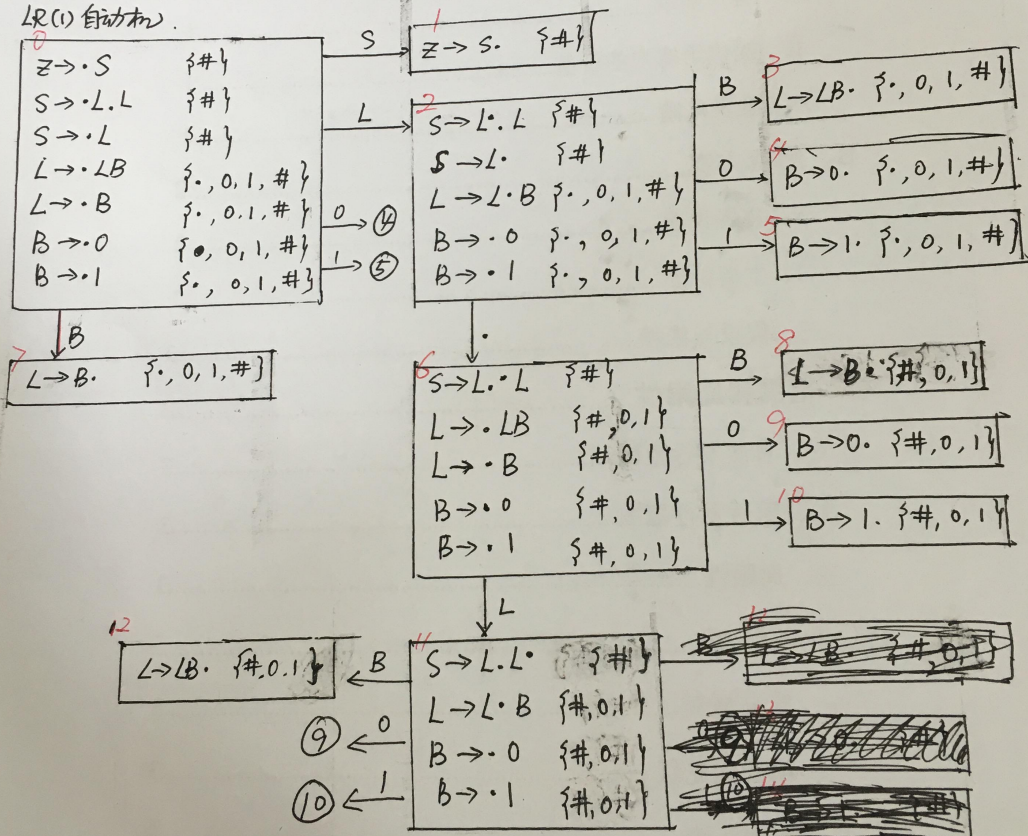 LR(1) 自动机.
0
Z→·S {#}
S→·L.L {#}
S→·L {#}
L→·LB {·,0,1,#}
L→·B {·,0,1,#}
B→·0 {·,0,1,#}
B→·1 {·,0,1,#}
S
1
Z→S. {#}
L
0 ④
1 ⑤
B
2
S→L·.L {#}
S→L· {#}
L→L·B {·,0,1,#}
B→·0 {·,0,1,#}
B→·1 {·,0,1,#}
B
3
L→LB· {·,0,1,#}
0
4
B→0· {·,0,1,#}
1
5
B→1· {·,0,1,#}
·
7
L→B· {·,0,1,#}
6
S→L.·L {#}
L→·LB {#,0,1}
L→·B {#,0,1}
B→·0 {#,0,1}
B→·1 {#,0,1}
B
8
L→B· {#,0,1}
0
9
B→0· {#,0,1}
1
10
B→1. {#,0,1}
L
11
S→L.L· {#}
L→L·B {#,0,1}
B→·0 {#,0,1}
B→·1 {#,0,1}
B
12
L→LB· {#,0,1}
0
⑨
1
⑩